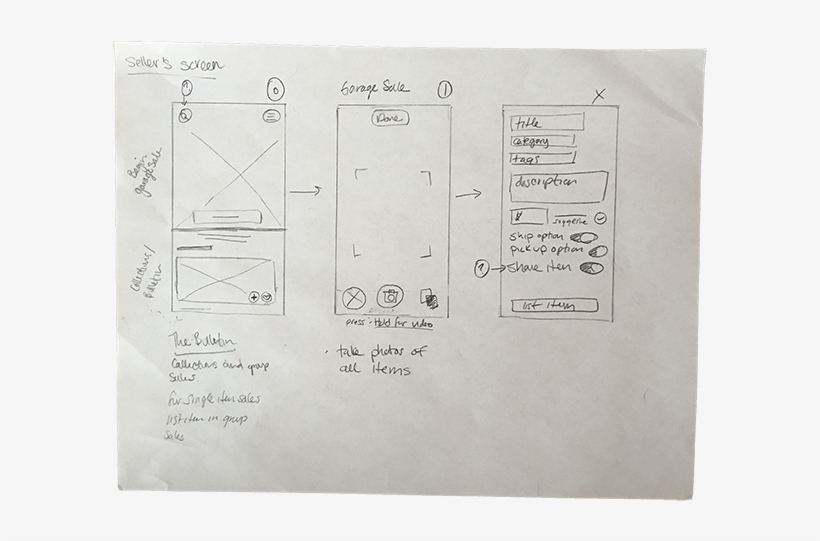 Seller's screen
Begin
garage sale
Collections/
Bulletin
The Bulletin
Collections and group
sales.
For single item sales
list item in group
sales
Garage Sale
1
Done
press - Hold for video
• take photos of
all items
X
title
category
tags
description
$
suggestive
ship option
pick up option
? → share item
list item